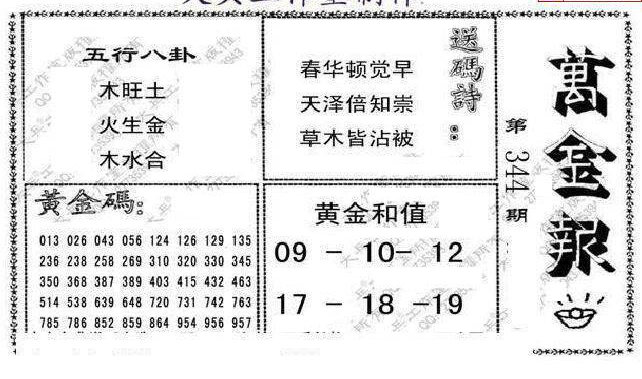 五行八卦
木旺土
火生金
木水合
送碼詩：
春华顿觉早
天泽倍知崇
草木皆沾被
萬金報
第344期
黃金碼：
013 026 043 056 124 126 129 135
236 238 258 269 310 320 330 345
350 368 387 389 403 415 432 463
514 538 639 648 720 731 742 763
785 786 852 859 864 954 956 957
黄金和值
09 - 10- 12
17 - 18 -19